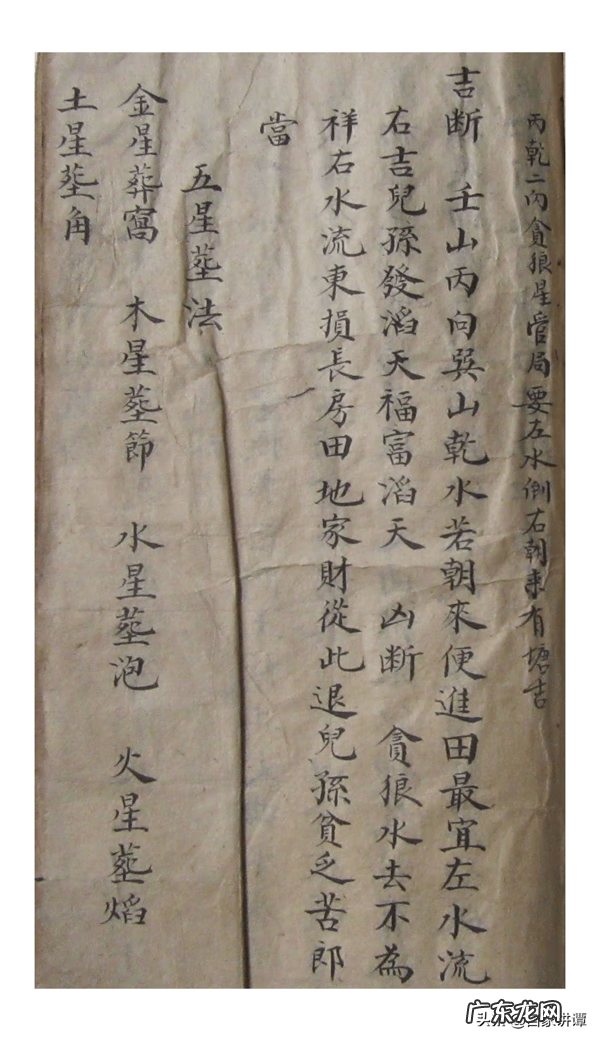 丙乾二向貪狼星管局要左水倒右朝来有塘吉
吉断 壬山丙向巽山乾水若朝來便進田最宜左水流
右吉兒孫發滔天福富滔天 凶断 貪狼水去不為
祥右水流東損長房田地家財從此退兒孫貧乏苦郎
當
五星塟法
金星葬窩 木星塟節 水星塟泡 火星塟焰
土星塟角
广东龙网